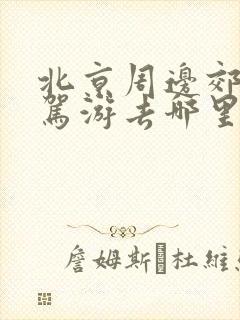 北京周邊郊
駕游去哪里
詹姆斯杜維